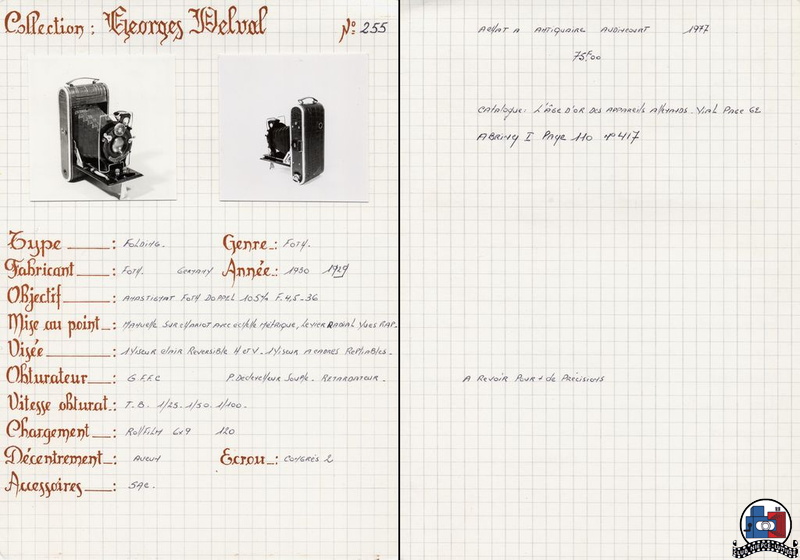 Collection : Georges Delval N°: 255
Type : Folding.
Genre : Foth.
Fabricant : Foth. Germany
Année : 1930 1929
Objectif : Anastigmat Foth Doppel 105% F.4,5-36
Mise au point : Manuelle sur chariot avec echelle métrique, levier Radial Vues Rap.
Visée : 1 Viseur clair Reversible H et V. 1 Viseur A cadres
Obturateur : G.F.F.C P. Declencheur Souple. Retardator.
Vitesse obturat. : T.B. 1/25. 1/50. 1/100.
Chargement : Rollfilm 6x9 120
Décentrement : Aucun
Ecrou : Congrès 2
Accessoires : SAC.
Achat A Antiquaire Audincourt 1977
75F00
Catalogue: L'âge d'or des appareils Allemands. Vial Page 62
Abring I Page 110 n° 417
A Revoir Pour + de Précisions